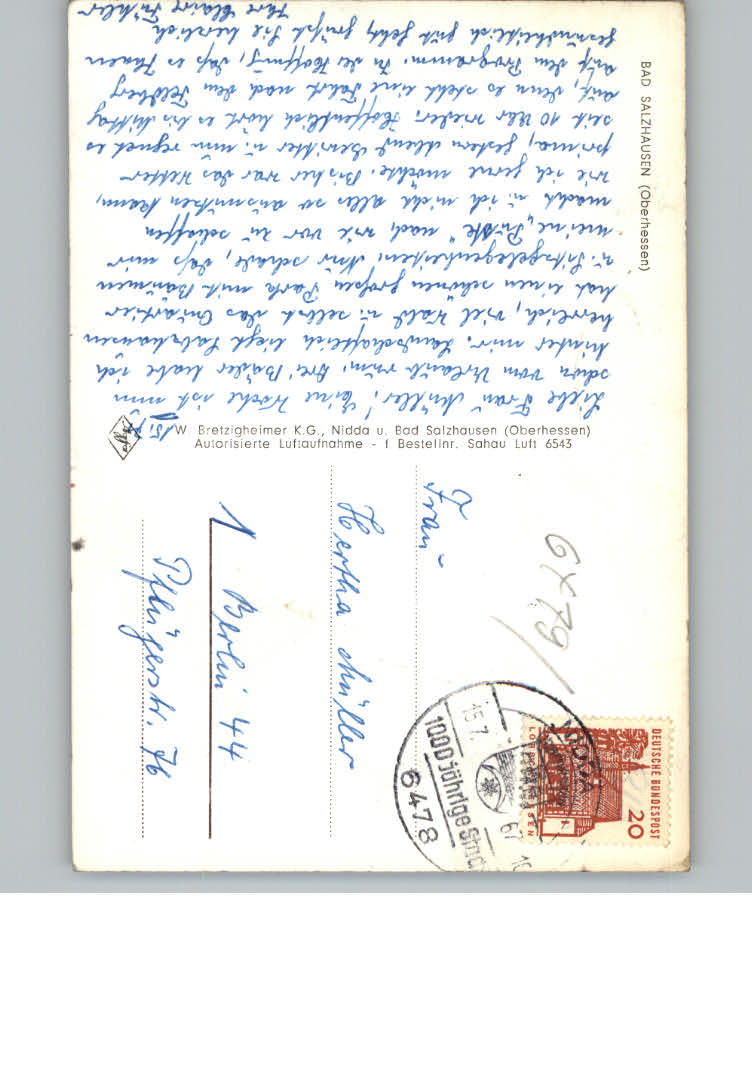 BAD SALZHAUSEN (Oberhessen)
15.7.
Liebe Frau Müller! Eine Woche ist nun
schon vom Urlaub rum, drei Bäder habe ich
hinter mir. Landschaftlich liegt Salzhausen
herrlich, viel Wald u. selbst das Quartier
hat einen schönen großen Park mit Bäumen
u. Sitzgelegenheiten. Nur schade, daß mir
meine „Pustk“ nach wie vor zu schaffen
macht u. ich nicht alles so ausnützen kann,
wie ich gerne möchte. Bisher war das Wetter
prima, gestern abend Gewitter u. nun regnet es
seit 10 Uhr wieder. Hoffentlich hört es bis Mittag
auf, denn es steht eine Fahrt nach dem Feldberg
auf dem Programm. In der Hoffnung, daß es Ihnen
gesundheitlich gut geht, grüßt Sie herzlich
Ihre
W. Bretzigheimer K.G., Nidda u. Bad Salzhausen (Oberhessen)
Autorisierte Luftaufnahme - f Bestellnr. Sahau Luft 6543
Frau
Hertha Müller
1 Berlin 44
Pflügerstr. 76
6x79/
DEUTSCHE BUNDESPOST
20
NIDDA
15.7.
67
1000 jährige Stadt
6478